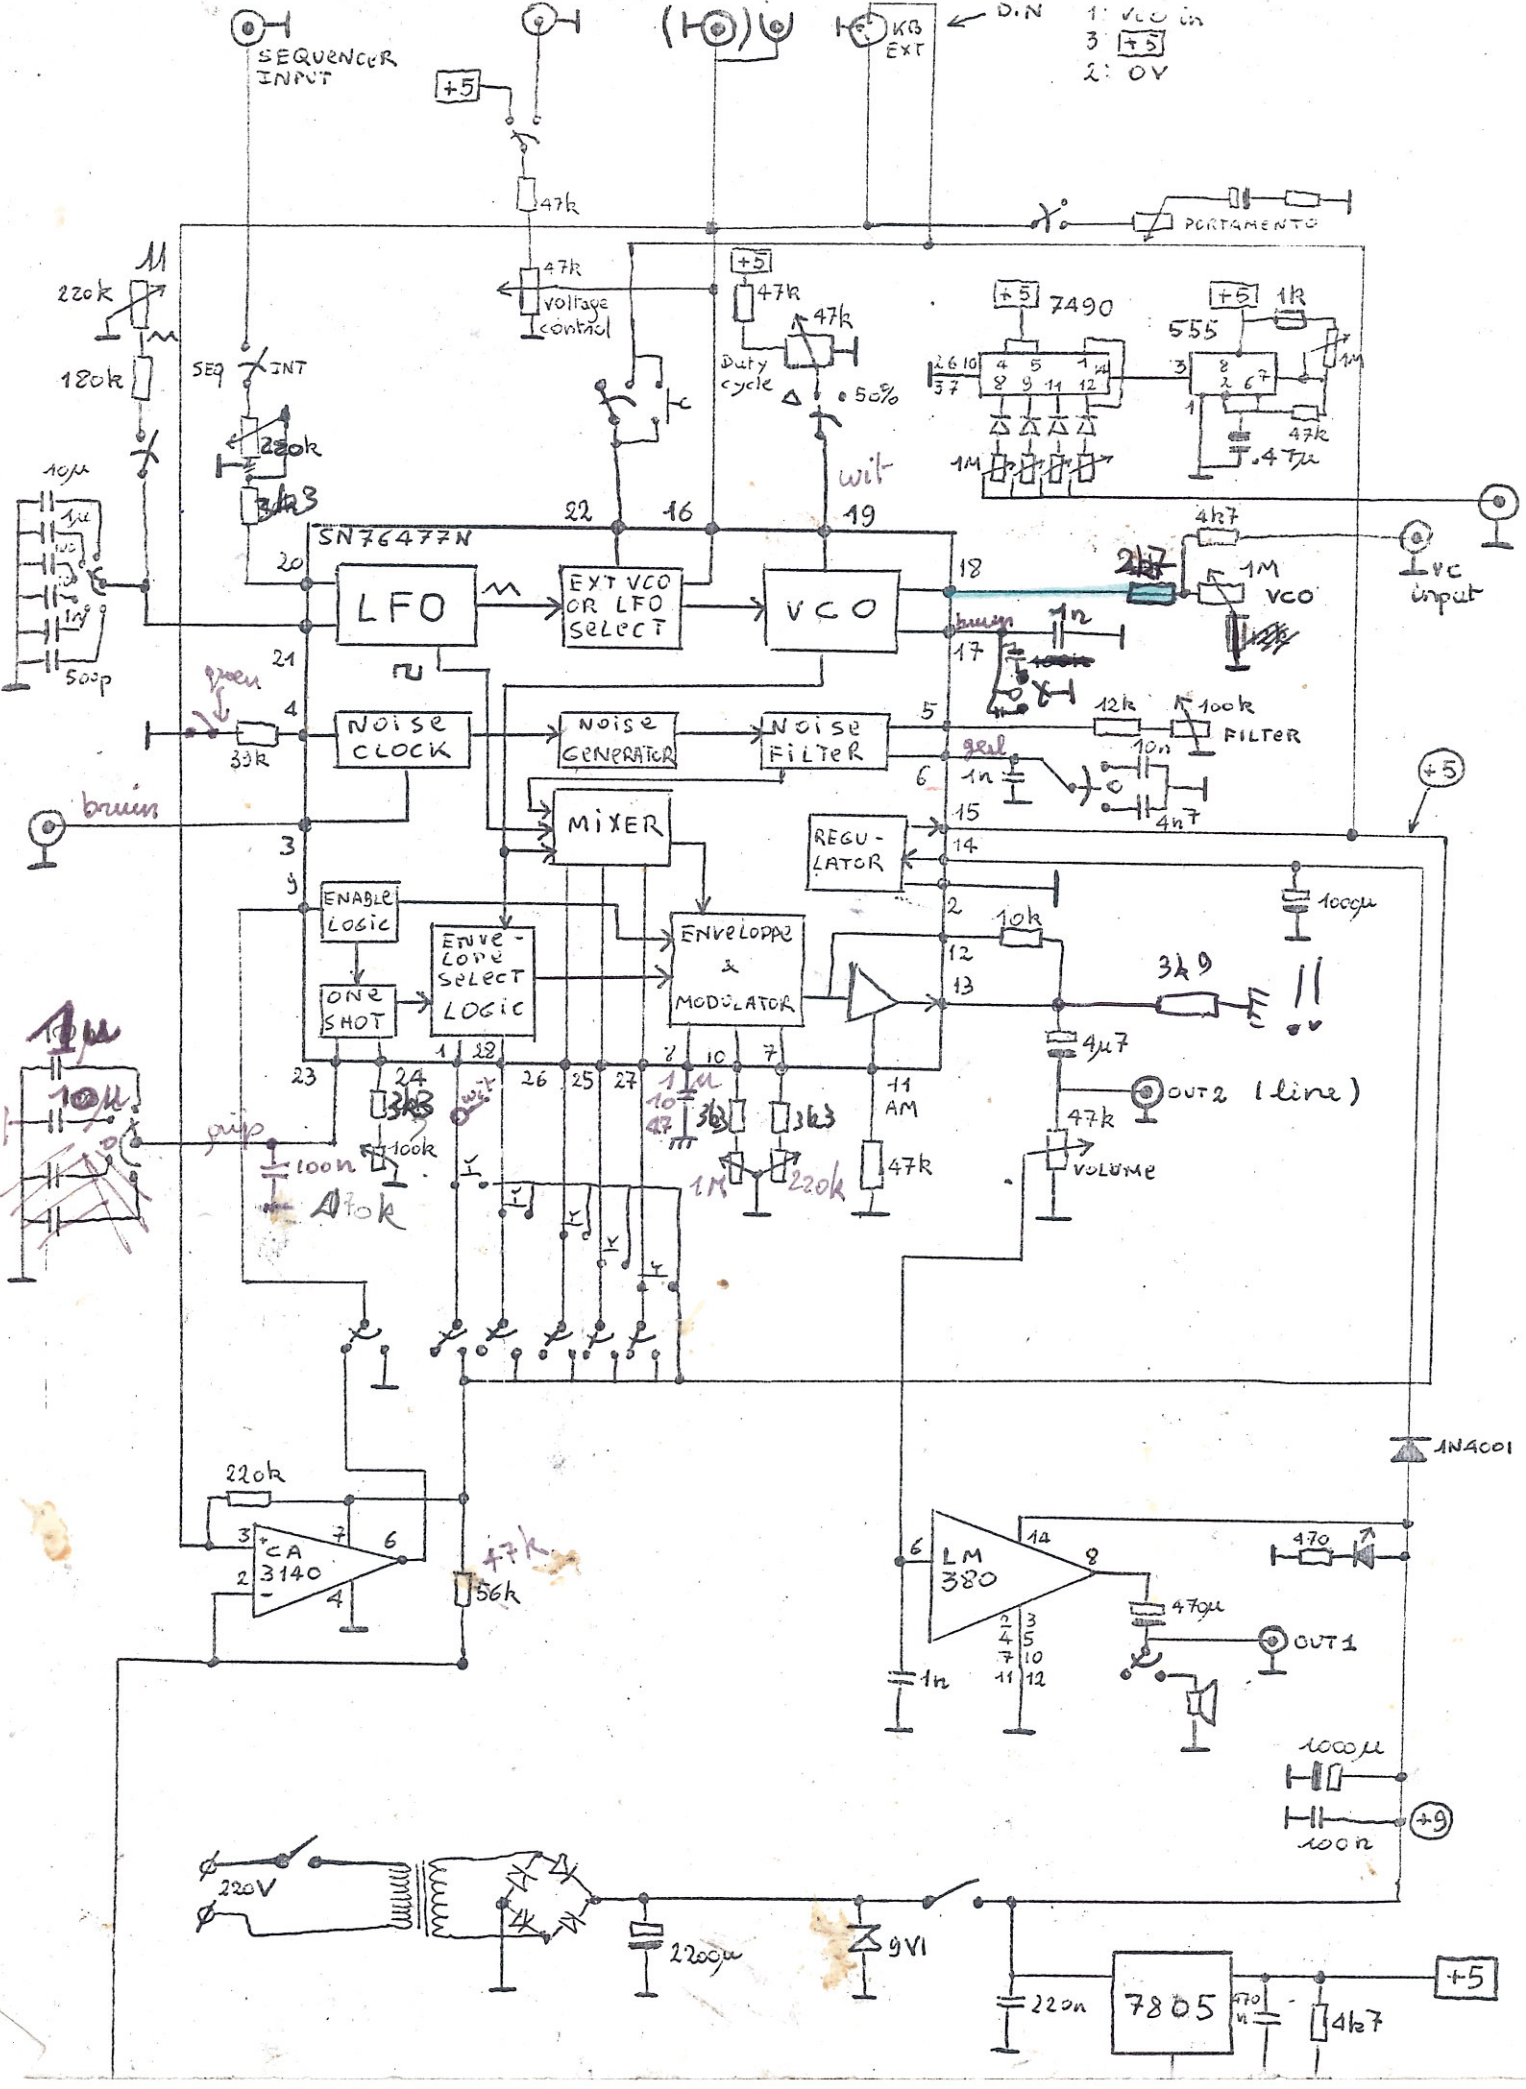 SEQUENCER
INPUT
+5
KB
EXT
DIN
1: VCO in
3 +5
2: 0V
47k
PORTAMENTO
11
220k
180k
SEQ
INT
220k
47k
voltage
control
+5
47k
47k
Duty
cycle
50%
wit
+5
7490
2 6 10
3 7
4 5 1 14
8 9 11 12
1M
+5
1k
555
3 8 2 6 7
1
1M
47k
.47µ
10µ
1µ
500p
22
16
19
SN76477N
20
LFO
EXT VCO
OR LFO
SELECT
VCO
18
2k7
4k7
1M
VCO
VC
input
21
17
1n
groen
4
39k
NOISE
CLOCK
NOISE
GENERATOR
NOISE
FILTER
5
12k
100k
FILTER
6
geel
1n
10n
4n7
+5
bruin
3
MIXER
REGU-
LATOR
15
14
2
1000µ
9
ENABLE
LOGIC
ONE
SHOT
ENVE-
LOPE
SELECT
LOGIC
ENVELOPPE
&
MODULATOR
10k
12
13
3k9
!!
1µ
10µ
23
24
1
28
26
25
27
8
10
7
11
AM
1µ
10
47
3k3
wit
3k3
3k3
100k
1M
220k
47k
grijs
100n
470k
4µ7
OUT2 (line)
47k
VOLUME
1N4001
220k
3
+
CA
3140
2
-
7
6
4
47k
56k
6
LM
380
14
8
2 3
4 5
7 10
11 12
1n
470
470µ
OUT1
1000µ
+9
100n
220V
2200µ
9V1
220n
7805
470
n
4k7
+5